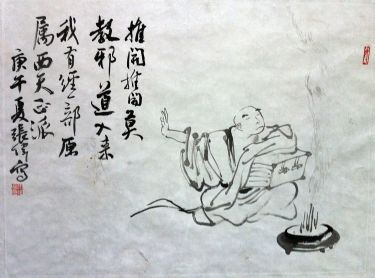 推開推開莫
教邪道入来
我有經一部原
属西天正派
庚午夏張偉寫